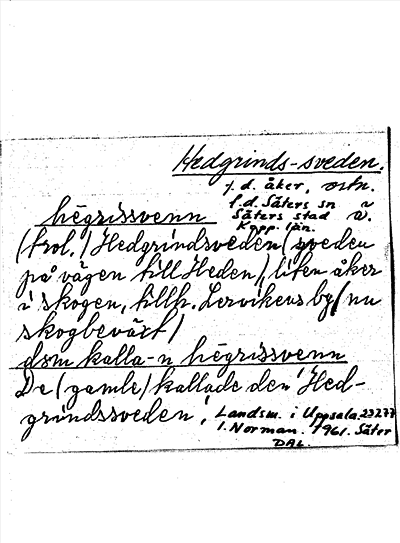 Hedgrinds-sveden.
f.d. åker, ortn.
f.d. Säters sn
Säters stad
Kopp. län.
hēgrissvenn
(trol.) Hedgrindsveden (sveden
på vägen till Heden), liten åker
i skogen, tillh. Lervikens by (nu
skogbeväxt)
dɷm kalla-n hēgrissvenn
De (gamle) kallade den 'Hed-
grindssveden'.
Landsm. i Uppsala 23277
I. Norman. 1961. Säter
DAL.